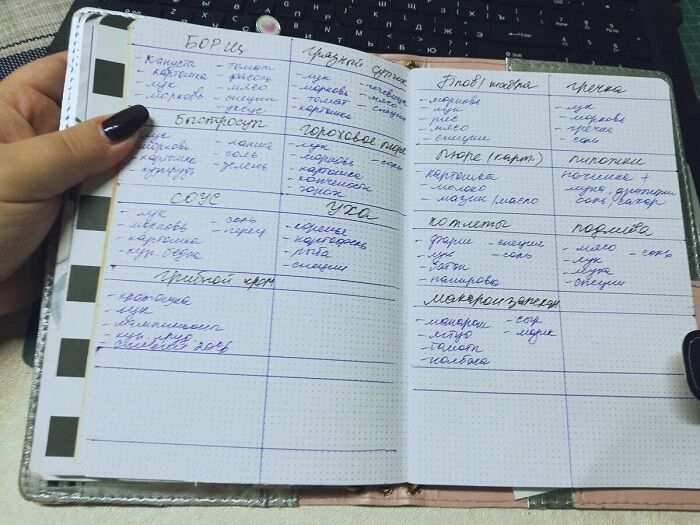 БОРЩ
- капуста - томат
- картошка - фасоль
- лук - мясо
- морковь - специи
- уксус
грязный супчик
- лук - чечевица
- морковь - мясо
- томат - специи
- картошка
быстросуп
- лук - лапша
- морковь - соль
- картошка - зелень
- кукуруза
гороховое пюре
- лук - соль
- морковь
- картошка
- копчености
- горох
СОУС
- лук - соль
- морковь - перец
- картошка
- кур. бедра
УХА
- коренья
- картофель
- рыба
- специи
грибной крем
- картошка
- лук
- шампиньоны
- кур. груд
- сливки 20%
Плов/шавля
- морковь
- лук
- рис
- мясо
- специи
гречка
- лук
- морковь
- гречка
- соль
пюре (карт.)
- картошка
- молоко
- мацик/масло
пирожки
начинка +
мука, дрожжи
соль, сахар
котлеты
- фарш - специи
- лук - соль
- батон
- панировка
подлива
- мясо - соль
- лук
- мука
- специи
макарон запекан
- макарон - сыр
- яйцо - мазик
- томаты
- колбаса